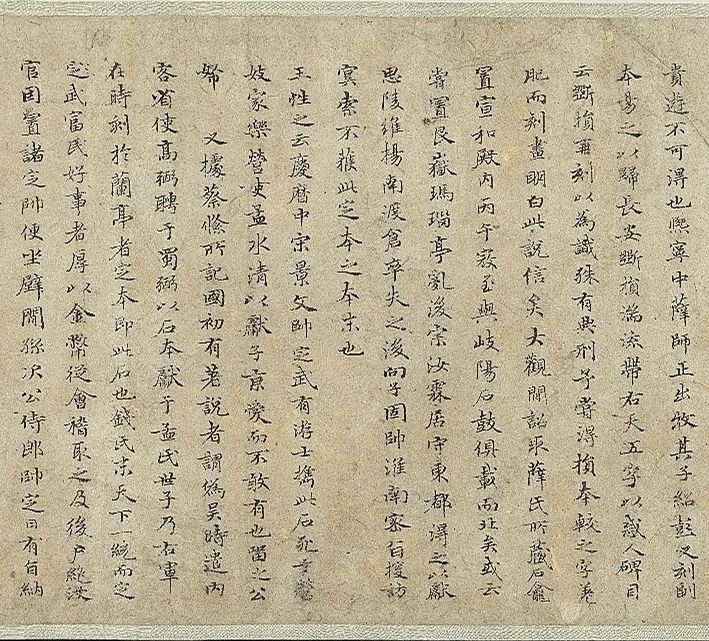 貴遊不可得也熙寧中薛師正出牧其子紹彭又刻副
本易之以歸長安斷損湍流帶右天五字以惑人碑目
云斷損再刻以為識殊有典刑予嘗得損本較之字差
肥而刻畫明白此說信矣大觀間詔取薛氏所藏石龕
置宣和殿內丙午寇至與岐陽石鼓俱載而北矣或云
嘗置艮嶽瑪瑙亭亂後宗汝霖居守東都得之以獻
思陵維揚南渡倉卒失之後向子固帥淮南密旨搜訪
冥索不獲此定本之本末也
王性之云慶曆中宋景文帥定武有游士攜此石死于營
妓家樂營吏孟水清以獻子京愛而不敢有也留之公
帑 又據蔡絛所記國初有著說者謂為吳時遣內
客省使高弼聘于蜀弼以石本獻于孟氏世子乃右軍
在時刻於蘭亭者定本即此石也錢氏末天下一統而定
定武富民好事者厚以金幣從會稽取之及後戶絕沒
官因置諸定帥便坐壁間孫次公侍郎帥定日有旨納